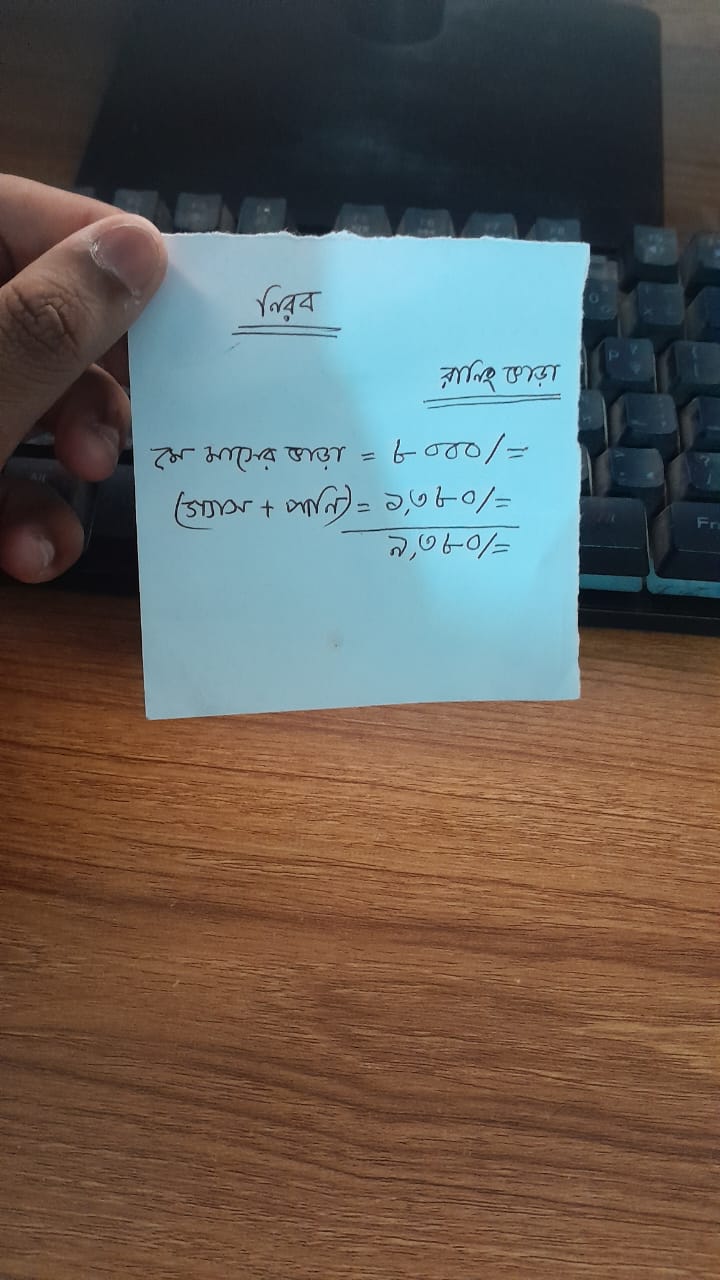 নিরব
রানিং ভাড়া
মে মাসের ভাড়া = ৮০০০/=
(গ্যাস + পানি) = ১,৩৮০/=
৯,৩৮০/=